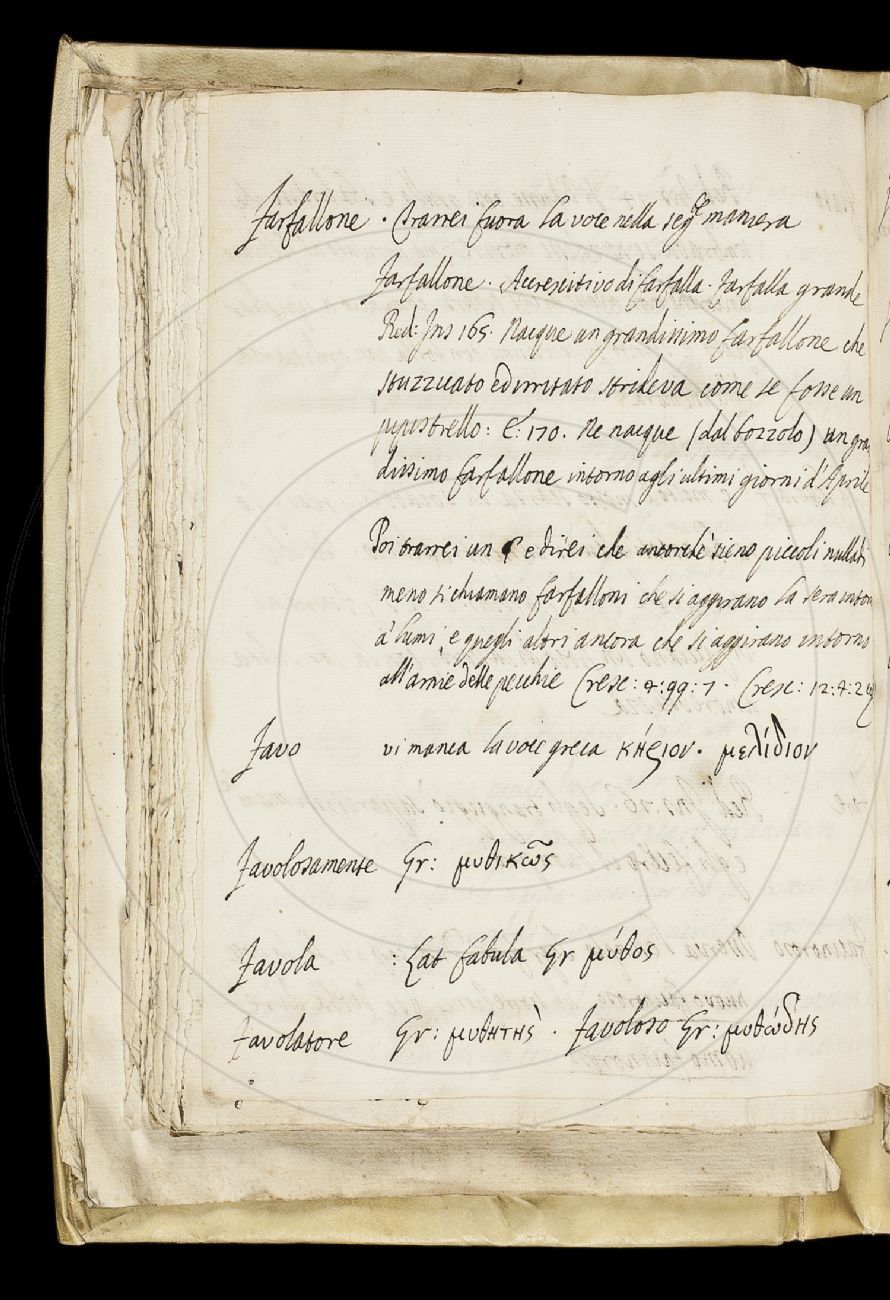 Farfallone . Trarrei fuora la voce nella seg.te maniera
Farfallone . Accrescitivo di farfalla . Farfalla grande
Red: Ins 165. Nacque un grandissimo farfallone che
stuzzicato ed irritato strideva come se fosse un
pipistrello: E: 170. Ne nacque (dal bozzolo) un gra
dissimo farfallone intorno agli ultimi giorni d'Aprile
Poi trarrei un e direi che ancorche sieno piccoli nulladi
meno si chiamano farfalloni che si aggirano la sera intor
a' lumi, e quegli altri ancora che si aggirano intorno
all'arnie delle pecchie Cresc: 4:99:7. Cresc: 12:4:2
Favo vi manca la voce greca κήριον. μελίδιον
Favolosamente Gr: μυθικῶς
Favola : Lat fabula Gr μύθος
Favolatore Gr: μυθητὴς . Favoloso Gr: μυθώδης